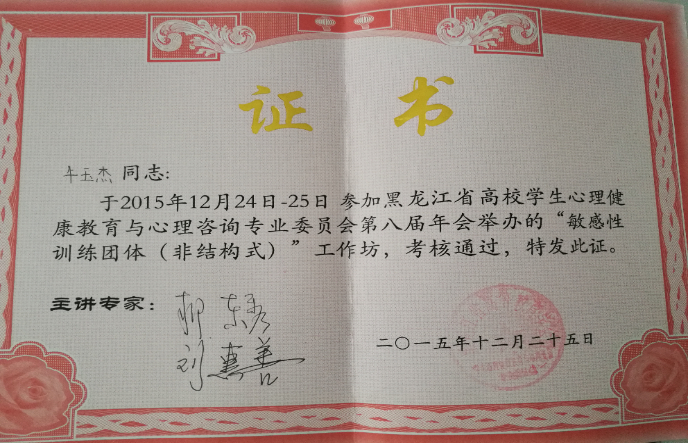 证 书
车玉杰 同志:
于2015年12月24日-25日 参加黑龙江省高校学生心理健
康教育与心理咨询专业委员会第八届年会举办的“敏感性
训练团体（非结构式）”工作坊，考核通过，特发此证。
主讲专家：
二〇一五年十二月二十五日